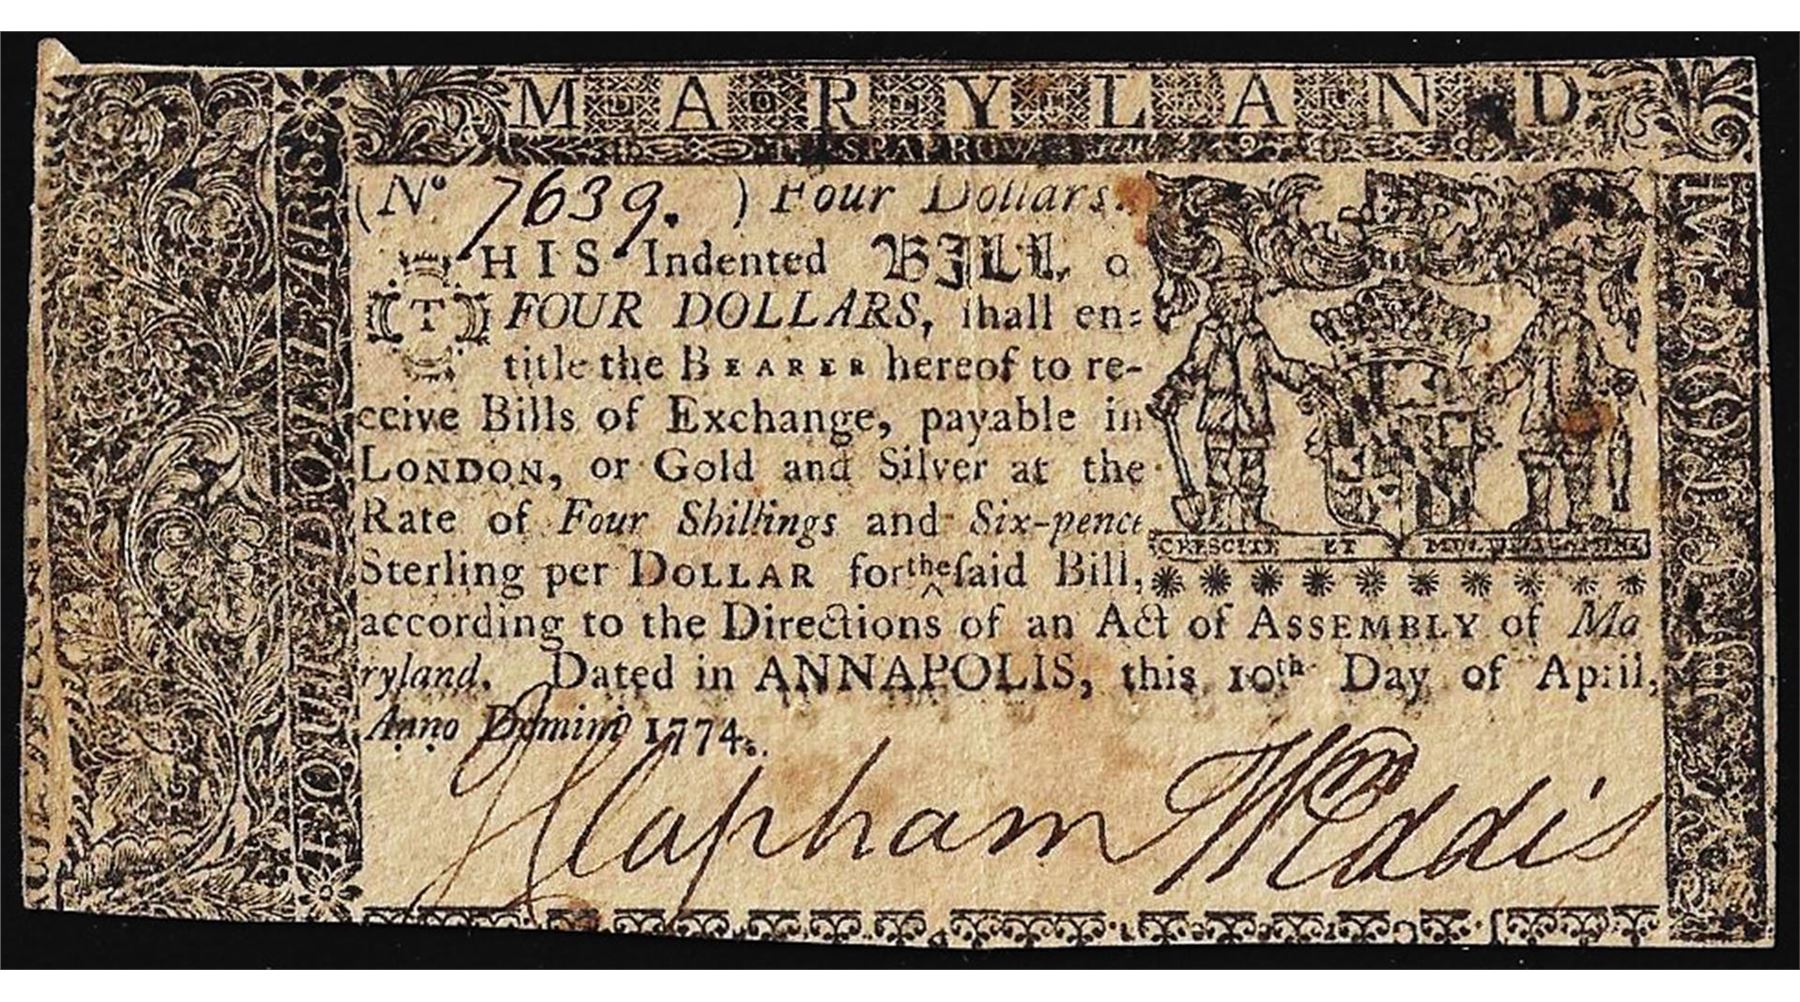 MARYLAND
T. SPARROW
(No. 7639.) Four Dollars.
THIS Indented BILL o
FOUR DOLLARS, ſhall en=
title the BEARER hereof to re-
ceive Bills of Exchange, payable in
LONDON, or Gold and Silver at the
Rate of Four Shillings and Six-pence
Sterling per DOLLAR for the ſaid Bill,
according to the Directions of an Act of ASSEMBLY of Ma
ryland. Dated in ANNAPOLIS, this 10th Day of April,
Anno Domini 1774.
JClapham WmEddis
CRESCITE ET MULTIPLICAMINI
FOUR DOLLARS.